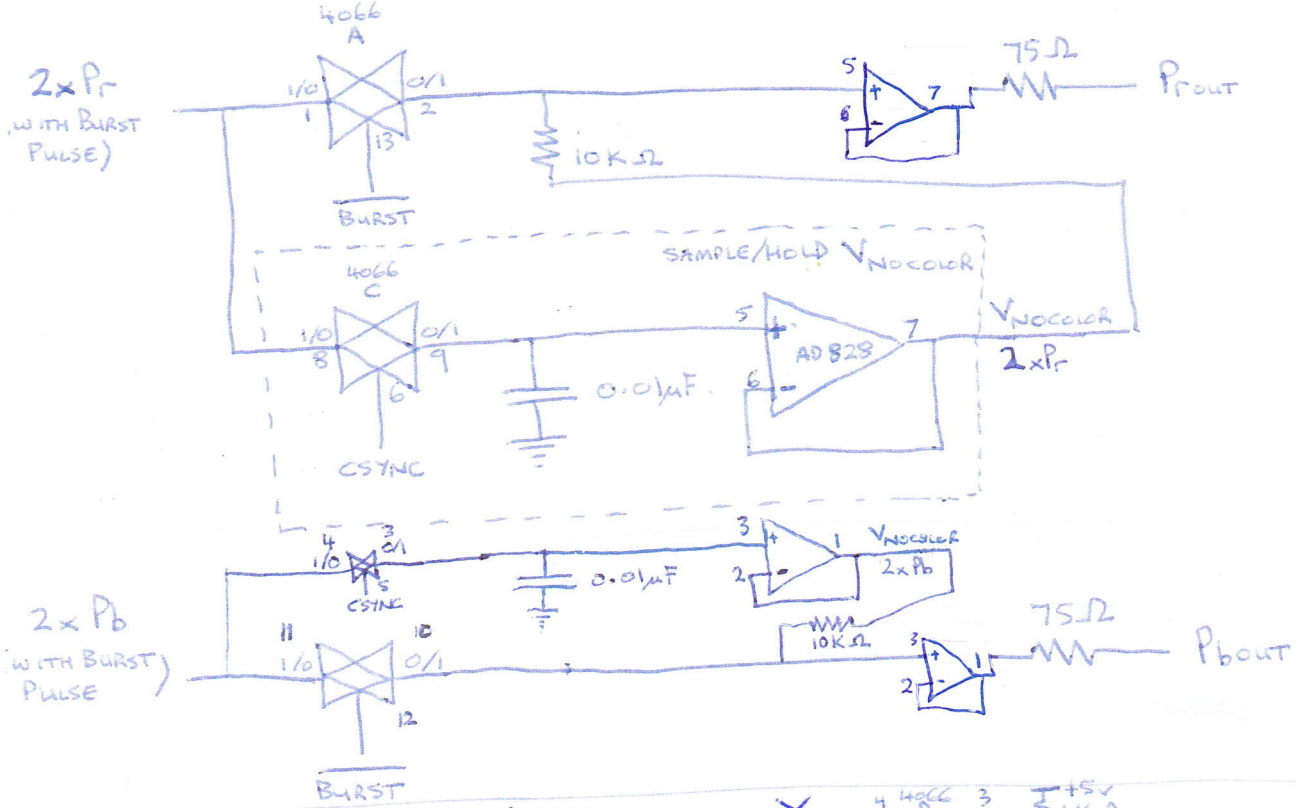 4066
A
2xPr
(WITH BURST
PULSE)
1/0
1
0/1
2
13
BURST
10KΩ
5
6
+
-
7
75Ω
Prout
SAMPLE/HOLD VNOCOLOR
4066
C
1/0
8
0/1
9
6
CSYNC
0.01µF
5
6
+
-
AD828
7
VNOCOLOR
2xPr
4
1/0
3
0/1
5
CSYNC
0.01µF
3
2
+
-
1
VNOCOLOR
2xPb
10KΩ
2xPb
(WITH BURST)
PULSE
11
1/0
10
0/1
12
BURST
3
2
+
-
1
75Ω
Pbout
4 4066 3
+5v